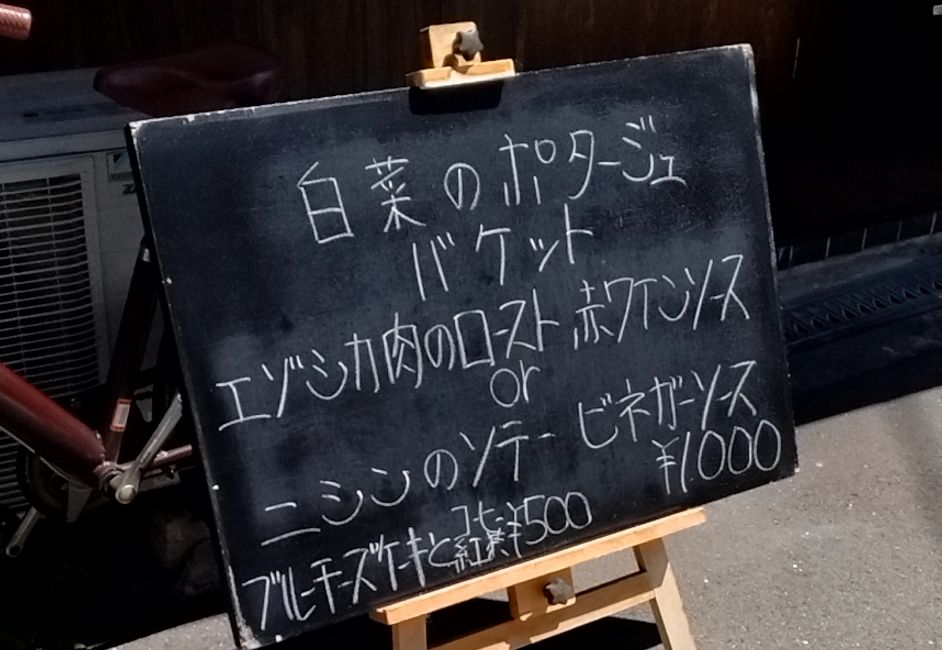 白菜のポタージュ
バケット
エゾシカ肉のロースト 赤ワインソース
or
ニシンのソテー ビネガーソース
¥1000
ブルーチーズケーキとコーヒー紅茶¥500